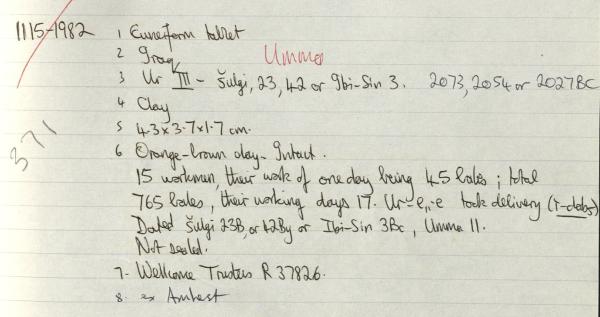 1115-1982 1 Cuneiform tablet
2 Iraq Umma
3 Ur III - Šulgi, 23, 42 or Ibi-Sin 3. 2073, 2054 or 2027 BC
4 Clay
371
5 4.3 x 3.7 x 1.7 cm.
6 Orange-brown clay - Intact.
15 workmen, their work of one day being 45 bales; total
765 bales; their working days 17. Ur-e₁₁-e took delivery (ì-dab₅)
Dated Šulgi 23B, or 42By or Ibi-Sin 3Bc, Umma 11.
Not sealed.
7- Wellcome Trustees R 37826.
8. ex Amherst